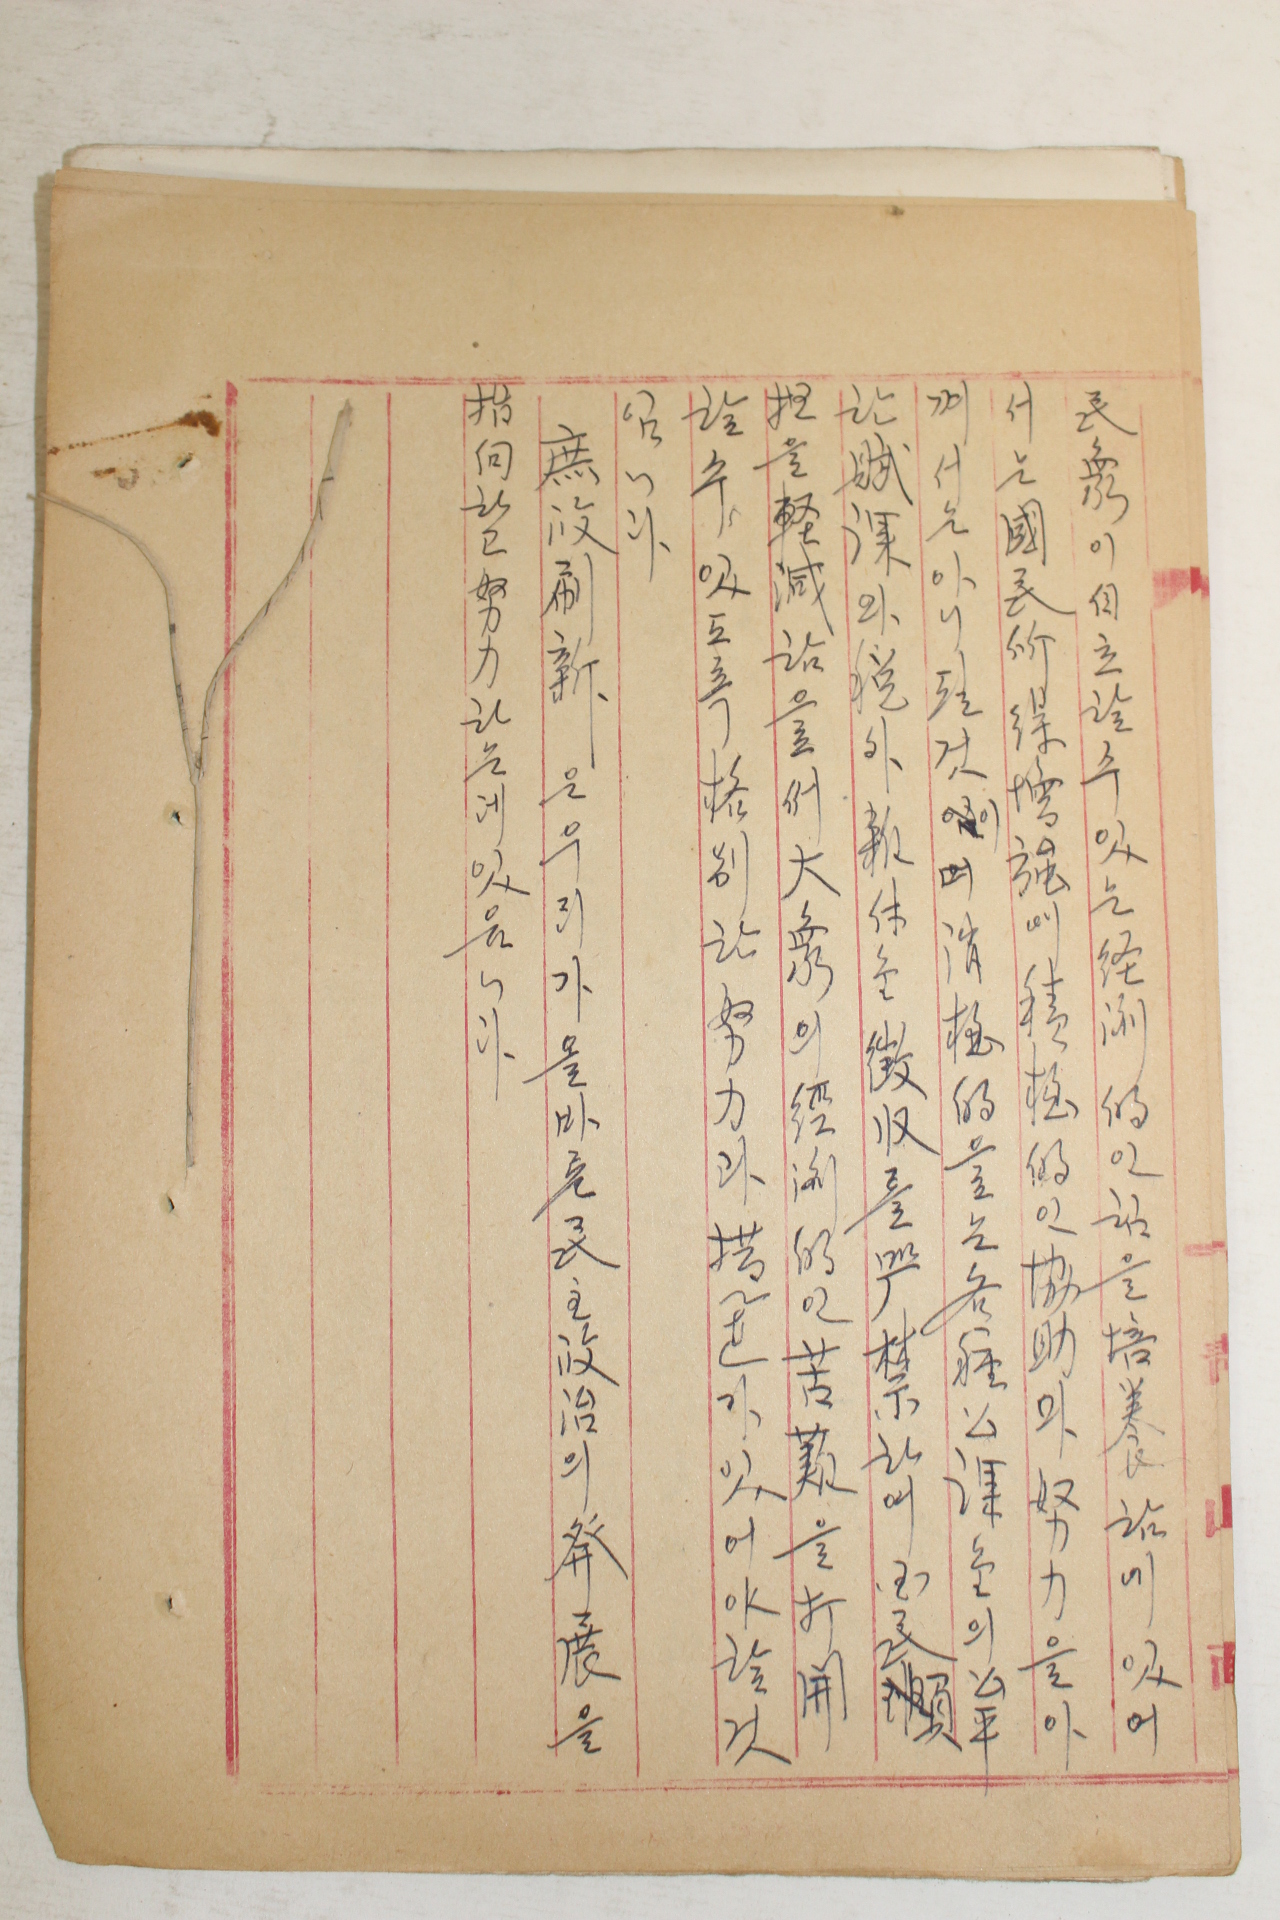 民衆이 自立할 수 있는 经済的인 힘을 培養함에 있어
서는 國民所得增強에 積極的인 協助와 努力을 아
끼서는 아니될 것이며 消極的으로는 各種公課金의 公平
한 賦課와 税外報休金 徵収를 嚴禁하며 国民負
担을 軽減함으로써 大衆의 經済的인 苦難을 打開
할 수 있도록 格別한 努力과 措置가 있어야 할 것
임니다
庶政刷新은 우리가 올바른 民主政治의 発展을
指向하고 努力하는데 있음니다
青 山 面